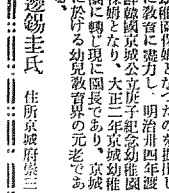 幼稚園保姆となつたのを振出し
に敎育に盡力し、明治卅四年渡
韓國京城公立庚子紀念幼稚園
保姆となり、大正二年京城幼稚
園に轉じ現に園長であり、京城
に於ける幼兒敎育界の元老であ
る。
邊錫圭氏 住所京城府崇三